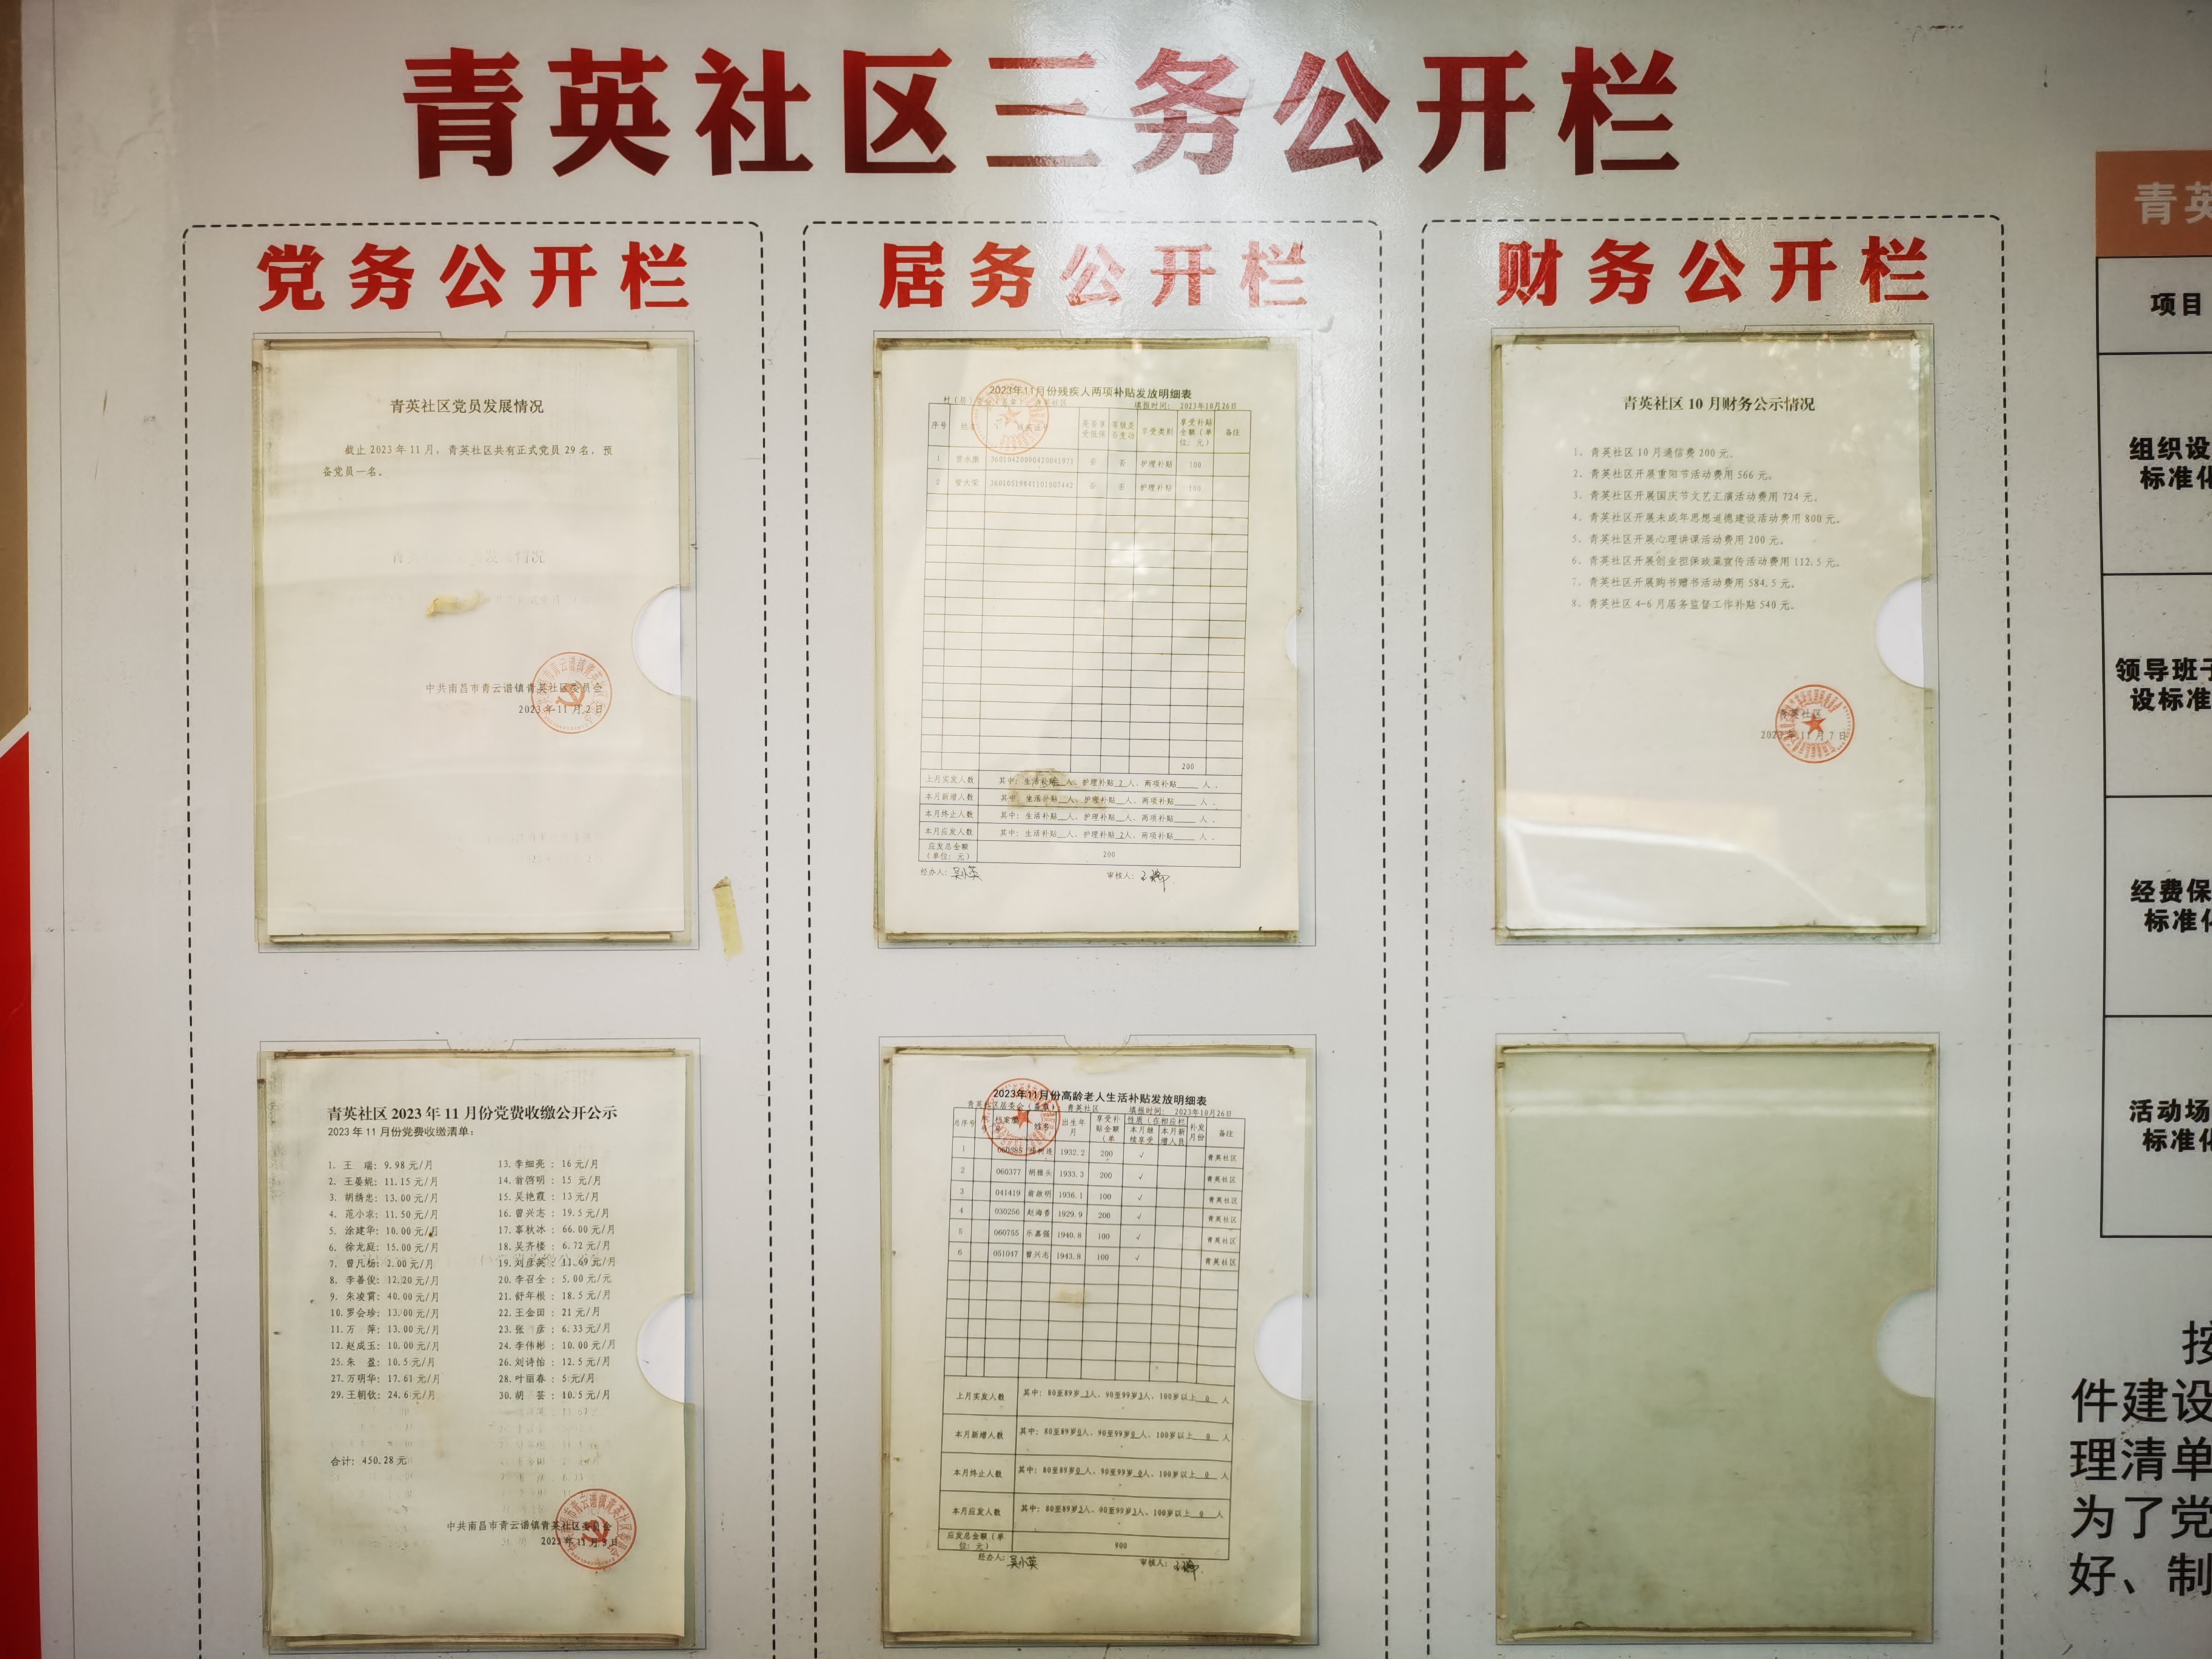 青英社区三务公开栏
党务公开栏
青英社区党员发展情况
截止 2023 年 11 月，青英社区共有正式党员 29 名，预
备党员一名。
中共南昌市青云谱镇青英社区委员会
2023 年 11 月 2 日
青英社区 2023 年 11 月份党费收缴公开公示
2023 年 11 月份党费收缴清单：
1. 王 瑞: 9.98 元/月 13. 李细亮 : 16 元/月
2. 王晏妮: 11.15 元/月 14. 翁啓明 : 15 元/月
3. 胡绣忠: 13.00 元/月 15. 吴艳霞 : 13 元/月
4. 范小求: 11.50 元/月 16. 曾兴志 : 19.5 元/月
5. 涂建华: 10.00 元/月 17. 辜秋冰 : 66.00 元/月
6. 徐龙庭: 15.00 元/月 18. 吴齐楼 : 6.72 元/月
7. 曾凡杨: 2.00 元/月 19. 刘彦英: 11.69 元/月
8. 李善俊: 12.20 元/月 20. 李召全 : 5.00 元/元
9. 朱凌霄: 40.00 元/月 21. 舒年根 : 18.5 元/月
10. 罗会珍: 13.00 元/月 22. 王金田 : 21 元/月
11. 万 萍: 13.00 元/月 23. 张 彦 : 6.33 元/月
12. 赵成玉: 10.00 元/月 24. 李伟彬 : 10.00 元/月
25. 朱 盈: 10.5 元/月 26. 刘诗怡 : 12.5 元/月
27. 万明华: 17.61 元/月 28. 叶丽春 : 5 元/月
29. 王朝钦: 24.6 元/月 30. 胡 芸 : 10.5 元/月
合计: 450.28 元
中共南昌市青云谱镇青英社区委员会
2023 年 11 月 3 日
居务公开栏
2023年11月份残疾人两项补贴发放明细表
填报时间： 2023年10月26日
序号 姓名 是否享受低保 享受类别 享受补贴金额（单位：元） 备注
1 36010420090420041971 否 否 护理补贴 100
2 36010519841101007442 否 否 护理补贴 100
200
上月实发人数 其中：生活补贴__人、护理补贴 2 人、两项补贴____ 人 。
本月新增人数 其中：生活补贴__人、护理补贴__人、两项补贴____ 人 。
本月终止人数 其中：生活补贴__人、护理补贴__人、两项补贴____ 人 。
本月应发人数 其中：生活补贴__人、护理补贴 2人、两项补贴____ 人 。
应发总金额（单位：元） 200
经办人：吴小英 审核人：
2023年11月份高龄老人生活补贴发放明细表
青英社区居委会（盖章） 青英社区 填报时间： 2023年10月26日
总序号 姓名 出生年月 享受补贴金额（单 性质（在相应栏 补发月份 备注
本月继续享受 本月新增人员
1 1932.2 200 √ 青英社区
2 060377 胡雅头 1933.3 200 √ 青英社区
3 041419 翁啟明 1936.1 100 √ 青英社区
4 030256 赵海香 1929.9 200 √ 青英社区
5 060755 乐嘉强 1940.8 100 √ 青英社区
6 051047 曾兴志 1943.8 100 √ 青英社区
上月实发人数 其中：80至89岁 3人、90至99岁3人、100岁以上 0 人
本月新增人数 其中：80至89岁0人、90至99岁0 人、100岁以上 0 人
本月终止人数 其中：80至89岁0 人、90至99岁 0人、100岁以上 0 人
本月应发人数 其中：80至89岁3人、90至99岁 3人、100岁以上 0 人
应发总金额（单位：元） 900
经办人：吴小英 审核人：
财务公开栏
青英社区 10 月财务公示情况
1、青英社区 10 月通信费 200 元。
2、青英社区开展重阳节活动费用 566 元。
3、青英社区开展国庆节文艺汇演活动费用 724 元。
4、青英社区开展未成年思想道德建设活动费用 800 元。
5、青英社区开展心理讲课活动费用 200 元。
6、青英社区开展创业担保政策宣传活动费用 112.5 元。
7、青英社区开展购书赠书活动费用 584.5 元。
8、青英社区 4-6 月居务监督工作补贴 540 元。
青英社区
2023 年 11 月 7 日
青英
项目
组织设
标准化
领导班子
设标准
经费保
标准化
活动场
标准化
按
件建设
理清单
为了党
好、制